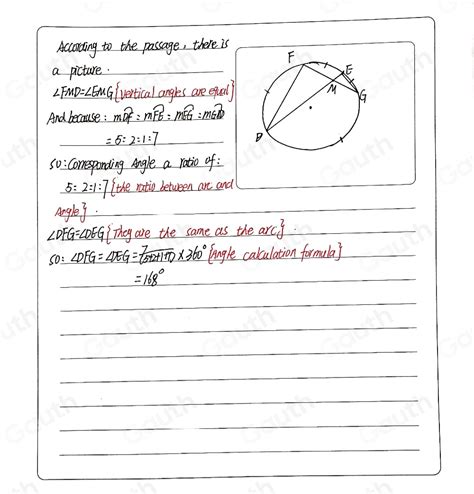 According to the passage, there is
a picture.
∠FMD=∠EMG{vertical angles are equal}
And because: mDF: mFE: mEG: mGD
= 5: 2:1:7
so: Corresponding Angle a ratio of:
5: 2:1:7{the ratio between arc and
Angle}.
∠DFG=∠DEG{They are the same as the arc}.
so: ∠DFG=∠DEG=7/(5+2+1+7)×360°{Angle calculation formula}
=168°
F
E
M
G
D
Gauth